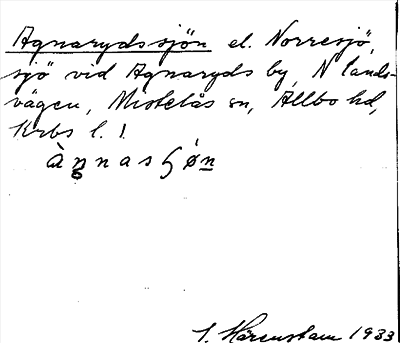 Agnarydssjön el. Norresjö,
sjö vid Agnaryds by, N lands-
vägen, Mistelås sn, Allbo hd,
Krbs l. !
àŋnasʃön
I. Härenstam 1933